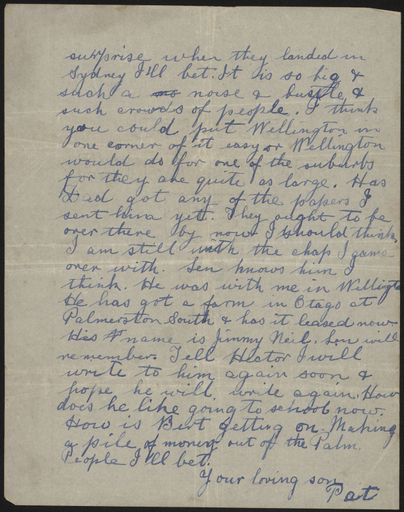 surprise when they landed in
Sydney I'll bet. It is so big &
such a noise & bustle, &
such crowds of people. I think
you could put Wellington in
one corner of it easy or Wellington
would do for one of the suburbs
for they are quite as large. Has
Dad got any of the papers I
sent him yet. They ought to be
over there by now I should think,
I am still with the chap I came
over with. Len knows him I
think. He was with me in Wellingt
He has got a farm in Otago at
Palmerston South & has it leased now
His name is Jimmy Neil. Len will
remember. Tell Hector I will
write to him again soon &
hope he will write again. How
does he like going to school now.
How is Bert getting on. Making
a pile of money out of the Palm.
People I'll bet.
Your loving son
Pat